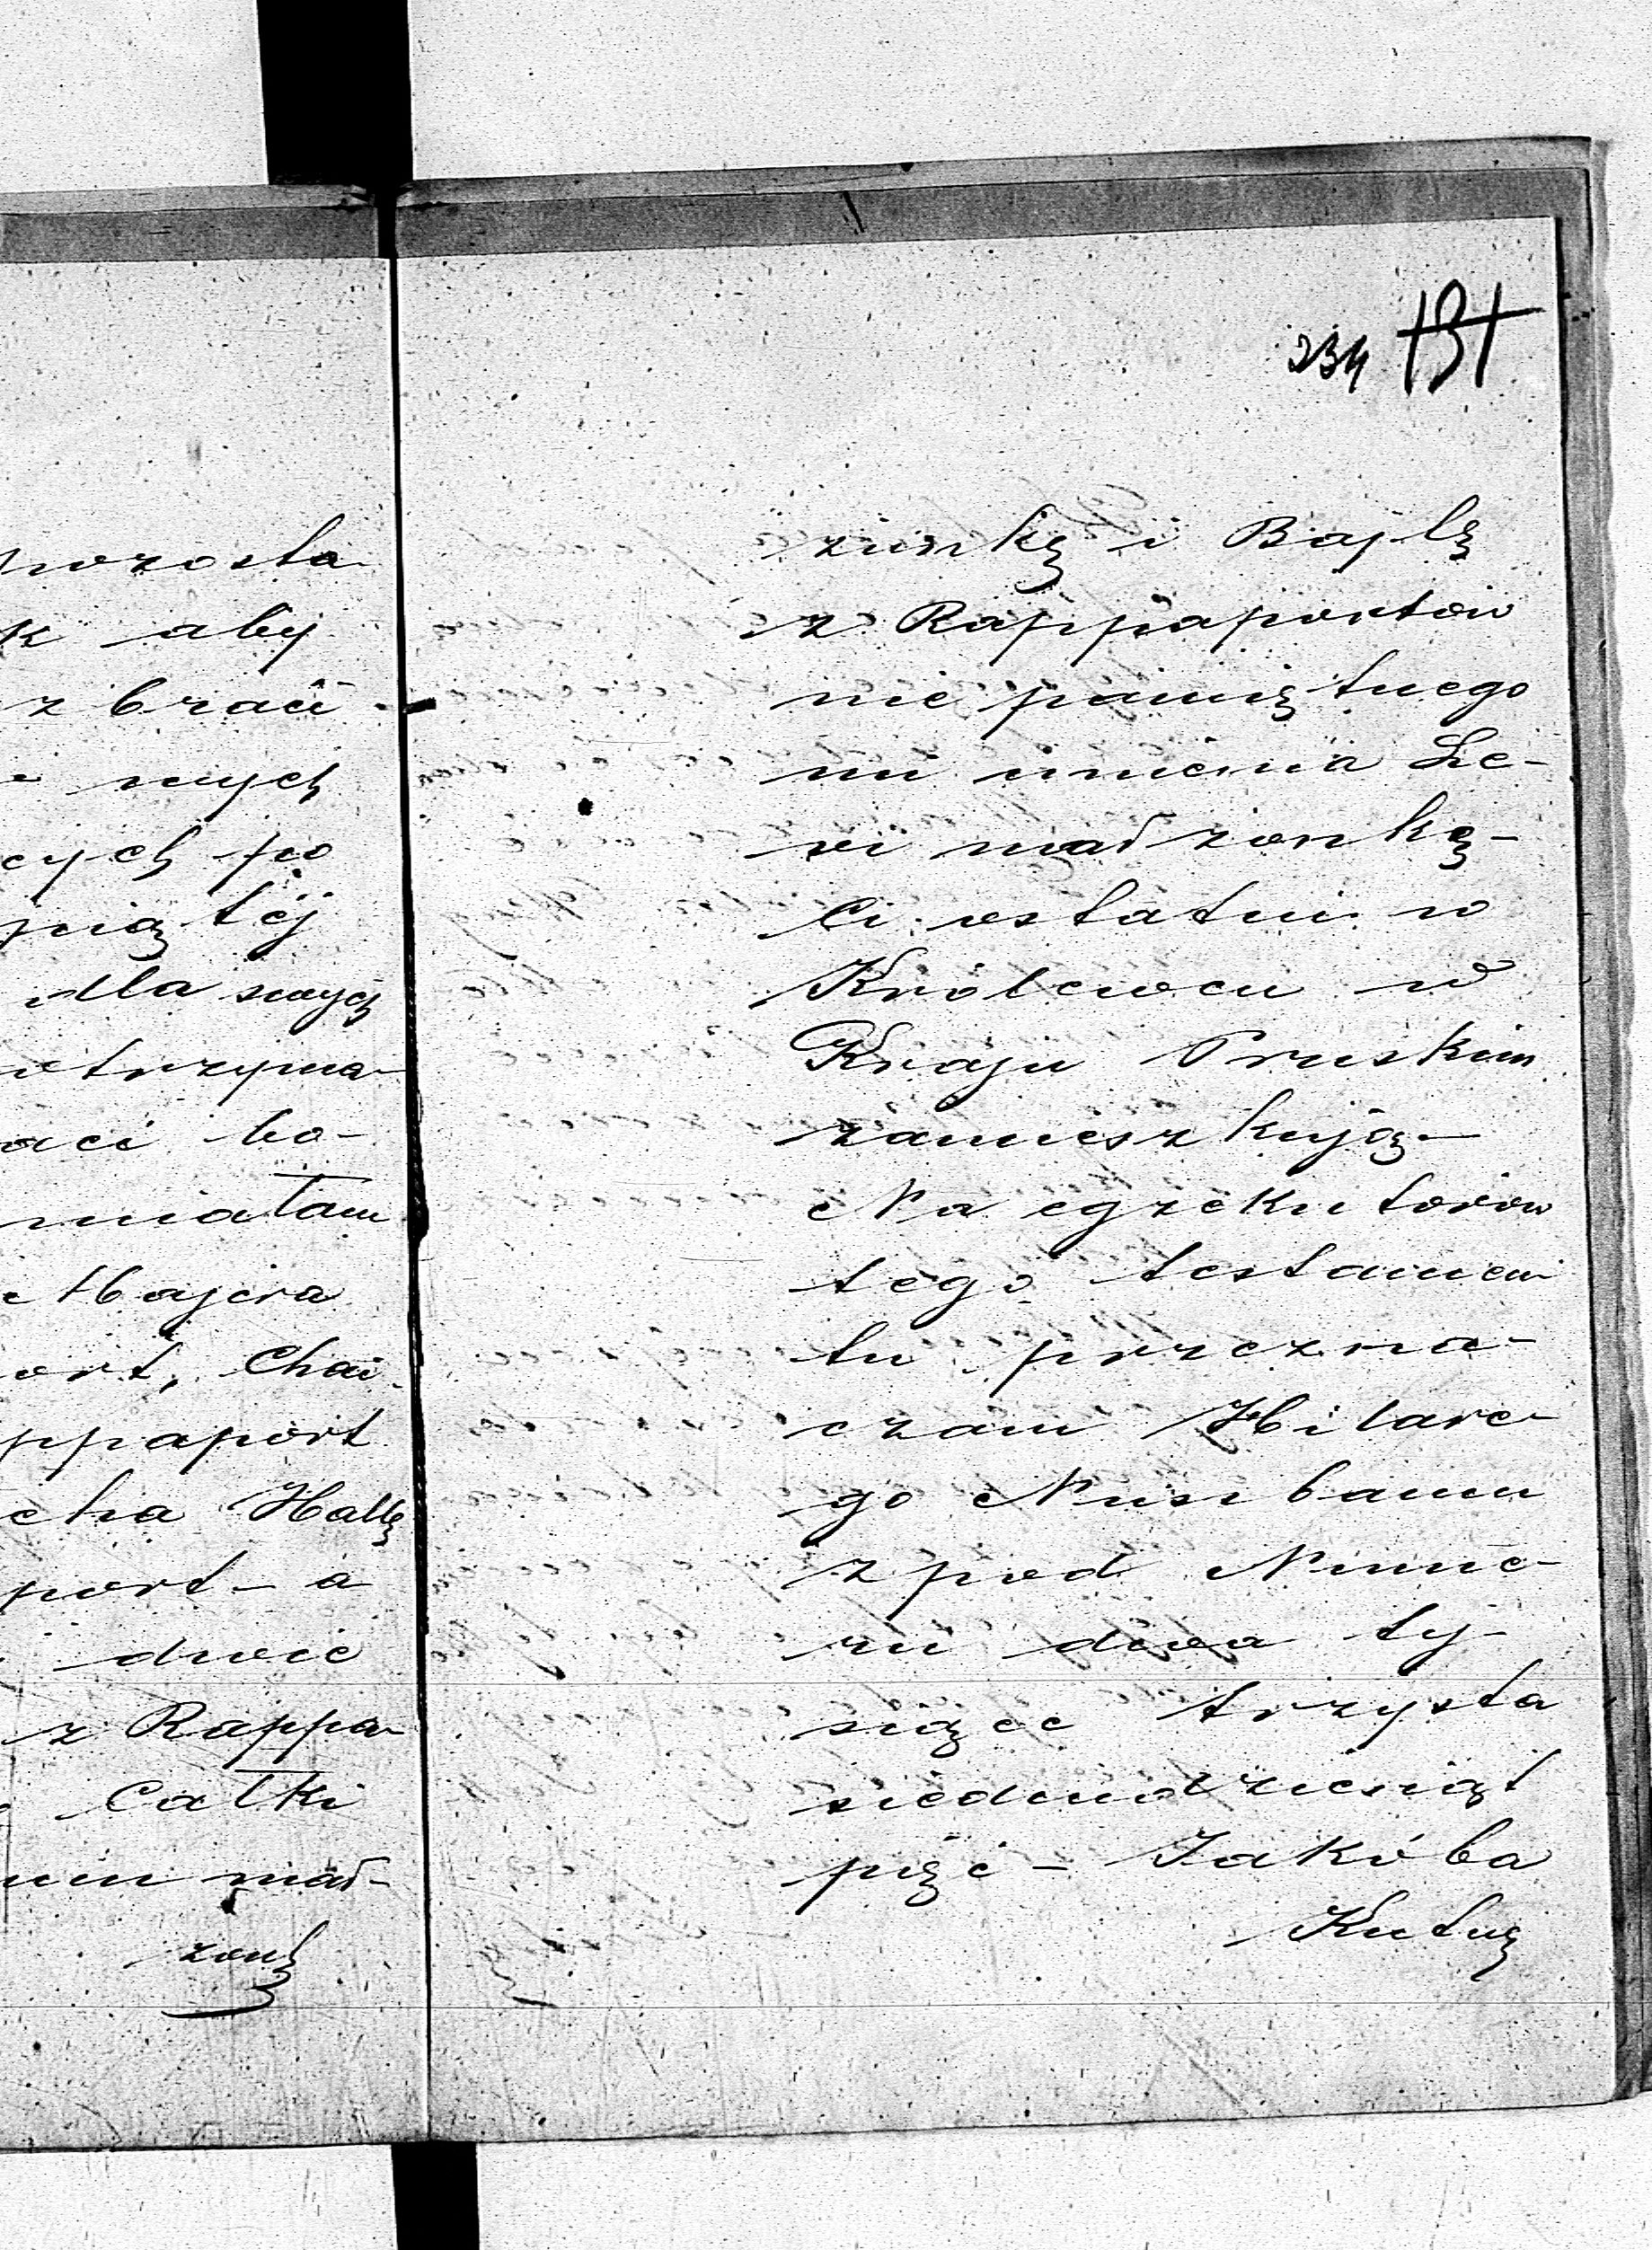 pozosta
k aby
z braci
mych
cych po
nią tej
dla swych
otrzyma-
aci bo-
miałam
Majera
ort, Chai
ppaport
cha Hallę
port - a
dwie
z Rappa
Całki
nim mał-
żonk
234 131
żonkę i Bajlę
z Rappaportów
nie pamiętnego
mi imienia Le-
wi małżonkę -
Ci ostatni w
Królewcu w
Kraju Pruskim
zamieszkują -
Na egzekutorów
tego testamen
tu przezna-
czam Hilare-
go Nusbaum
z pod Nume-
ru dwa ty-
siące trzysta
siedmdziesiąt
pięć - Jakóba
Kutnę